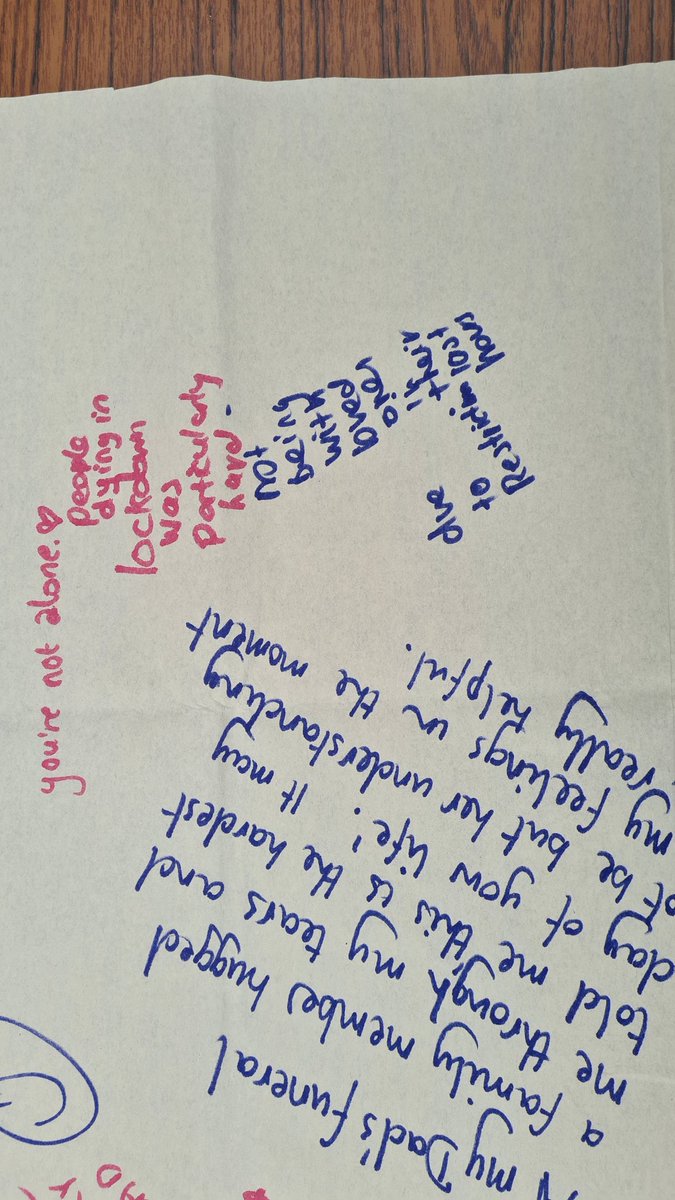 you're not alone. ♡
people
dying in
lockdown
was
particularly
hard.
not
being
with
loved
ones
in
their
last
hours
due
to
Restrictions
my Dad's funeral
a family member hugged
me through my tears and
told me, 'this is the hardest
day of your life'. It may
not be but her understanding
my feelings in the moment
really helpful.